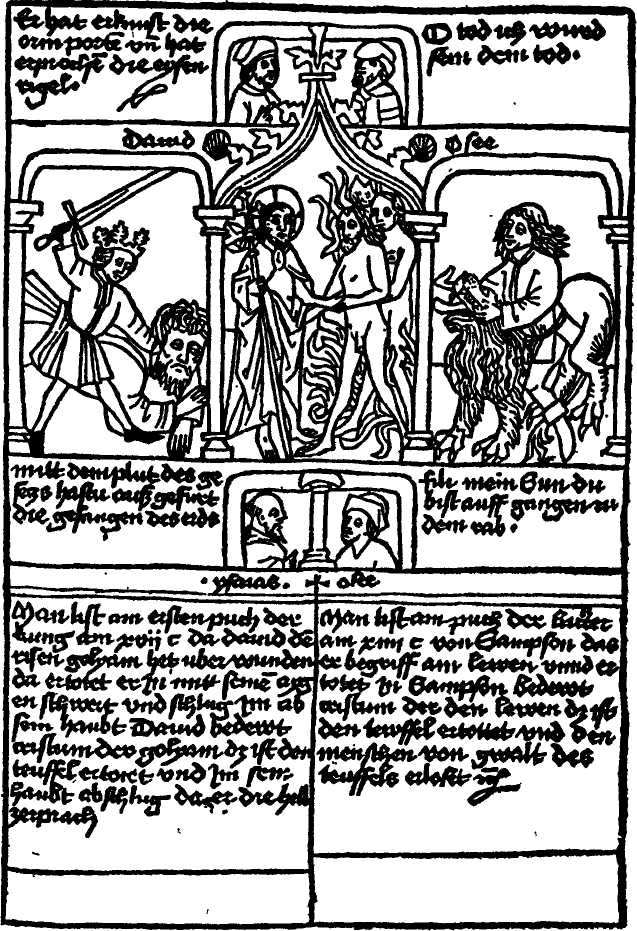 Er hat erknust die
erin porte vn̄ hat
erprochē die eysen
rigel.
O tod ich wurd
sein dem tod.
Dauid
Osee
mitt dem plut des ge
secz hastu auß gefurt
die gefangen des erds
ysaias. osee
fili mein Sun du
bist auff gangen zu
dem rab.
Man list am ersten puch der
kung am xvii c da dauid dē
risen goliam het uber wunden
da ertotet er in mitt seinē
en schwert vnd schlug Im ab
sein haubt Dauid bedewt
cristum der goliam dz ist den
teuffel ertotet vnd Im sein
haubt abschlug da er die hell
zerprach
Man list am puch der Richter
am xiiii c von Sampson das
er begriff am lewen vnnd er
totet in Sampson bedewt
cristum der den lewen dz ist
den tewffel ertottet vnd den
menschen von gwalt des
teuffels erlost